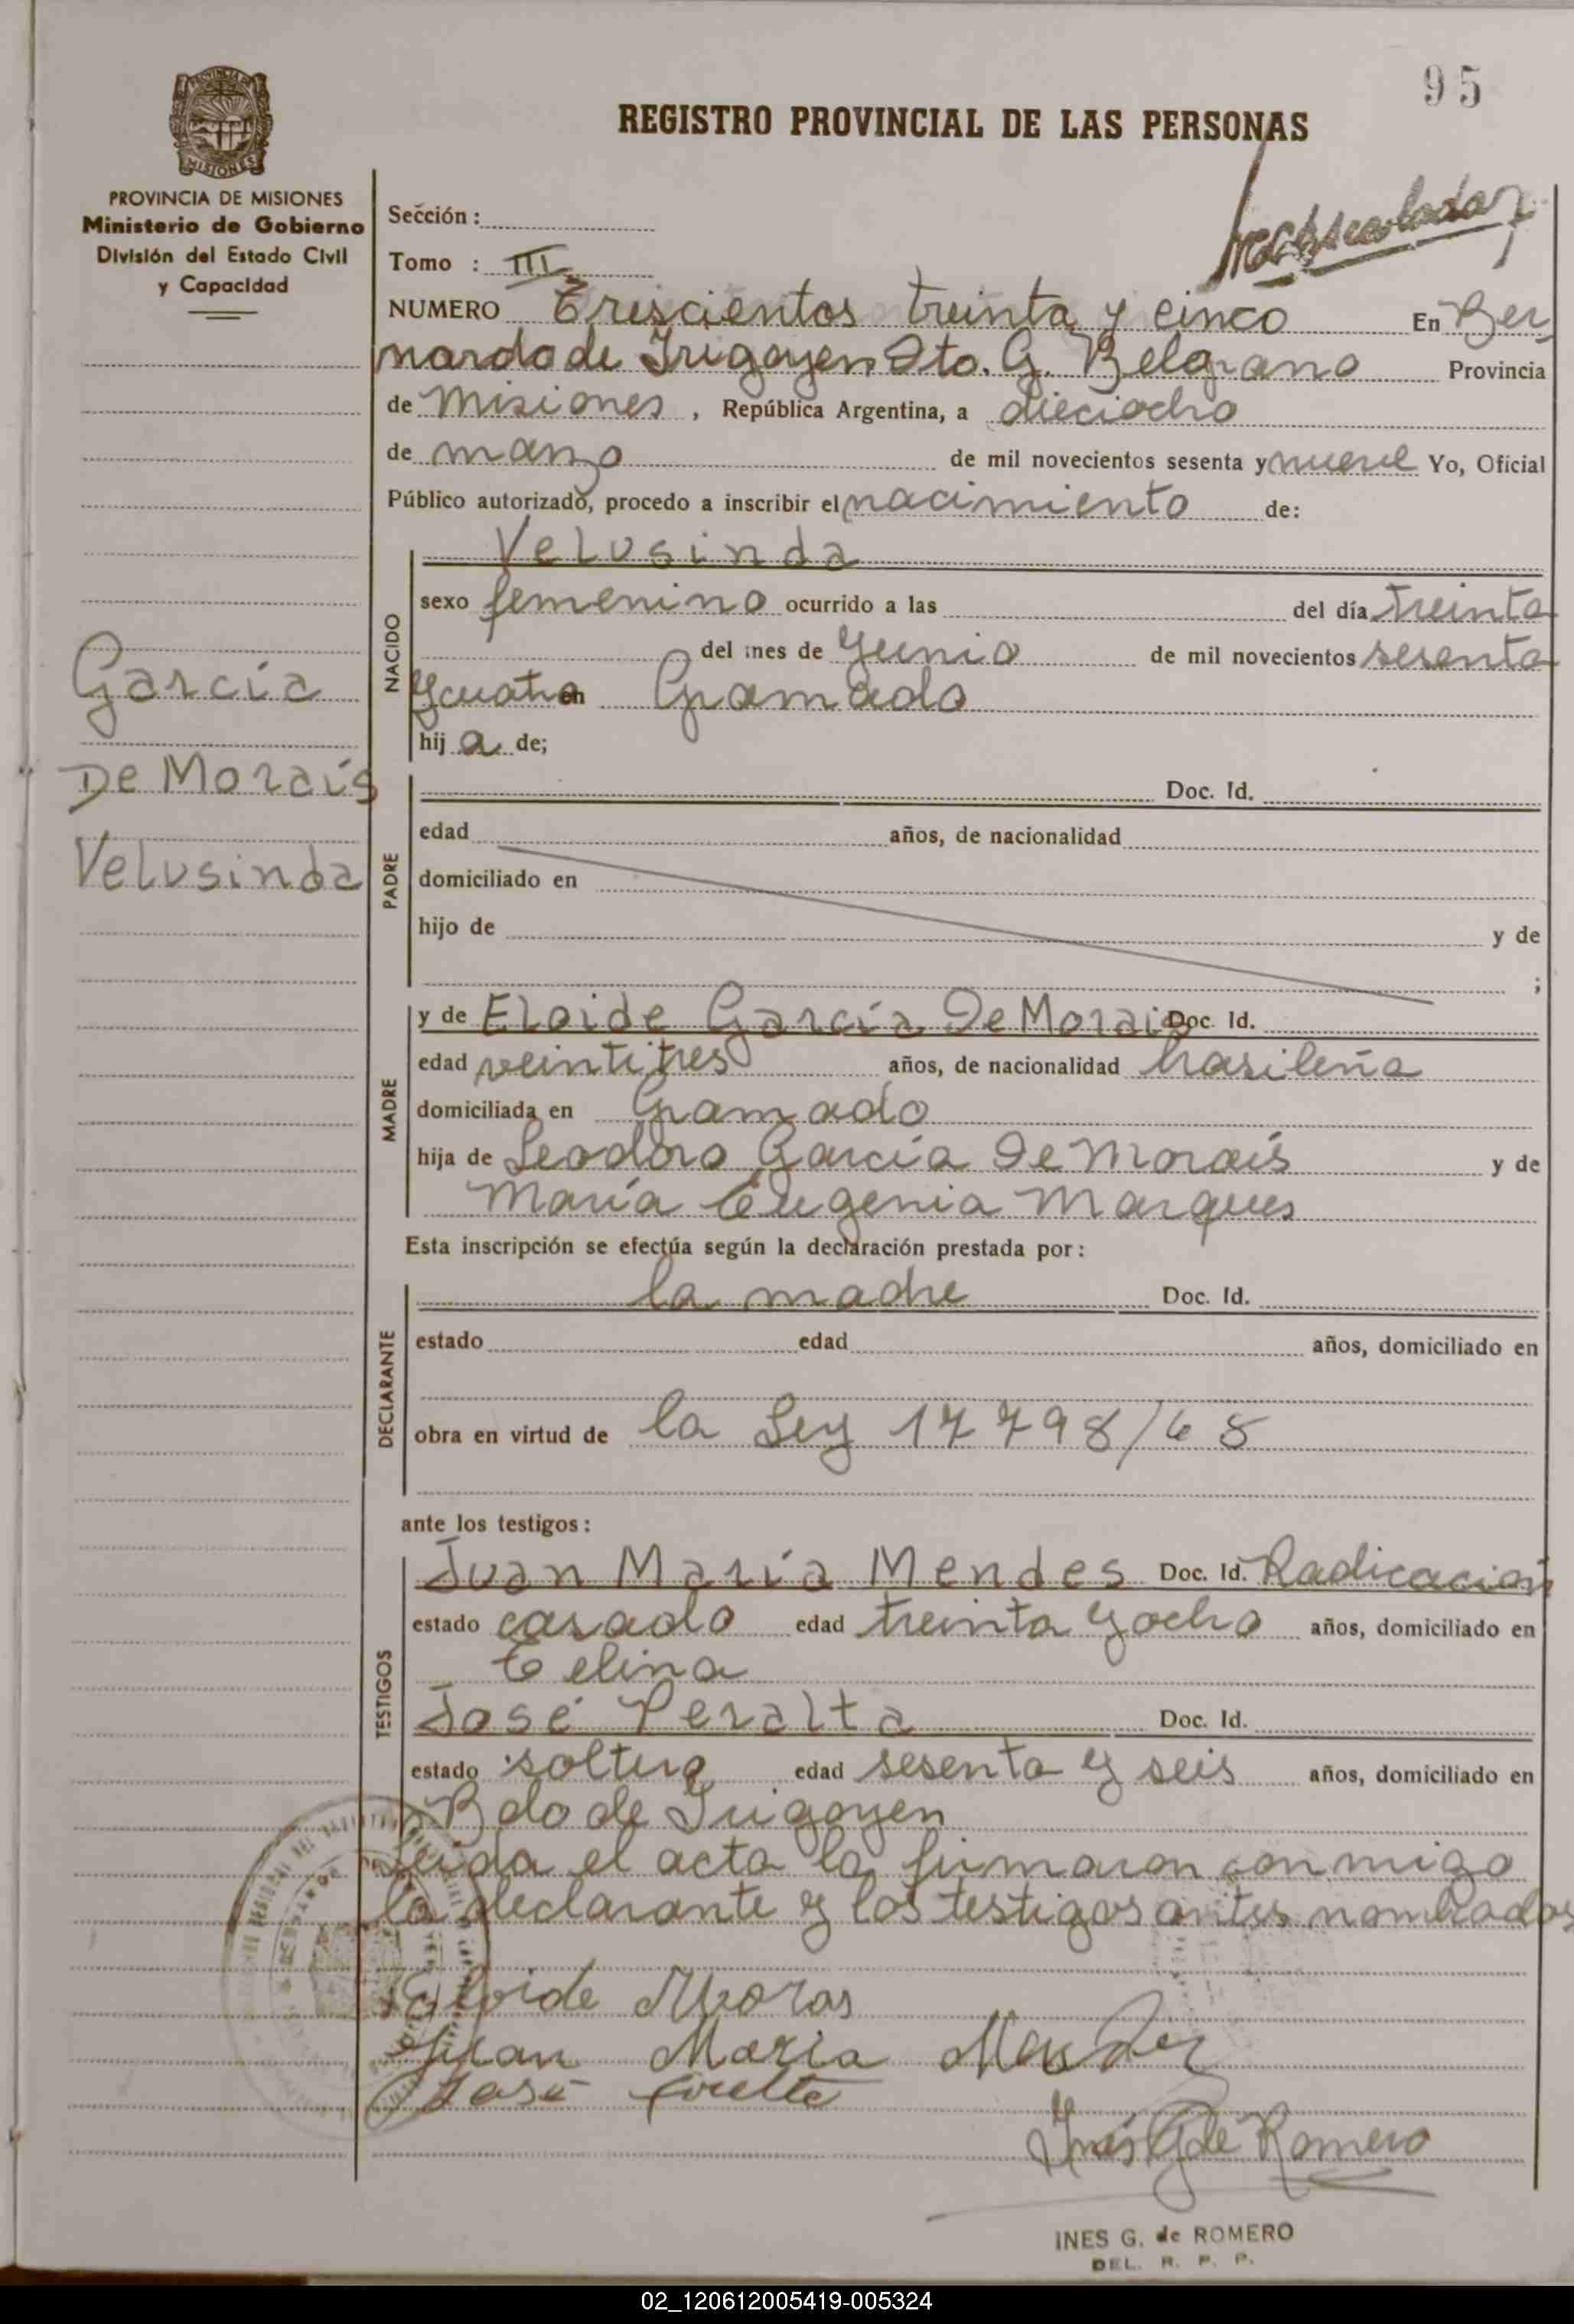 95
REGISTRO PROVINCIAL DE LAS PERSONAS
PROVINCIA DE MISIONES
Ministerio de Gobierno
División del Estado Civil
y Capacidad
Sección :
Tomo : III
NUMERO Trescientos treinta y cinco En Ber
nardo de Irigoyen Dto. G. Belgrano Provincia
de Misiones, República Argentina, a dieciocho
de marzo de mil novecientos sesenta y nueve Yo, Oficial
Público autorizado, procedo a inscribir el nacimiento de:
Velusinda
NACIDO
sexo femenino ocurrido a las del día treinta
del mes de Junio de mil novecientos sesenta
y cuatro en Gramado
hij a de;
García
De Moraís
Velusinda
PADRE
Doc. Id.
edad años, de nacionalidad
domiciliado en
hijo de y de
;
MADRE
y de Eloide García De Morais Doc. Id.
edad veintitres años, de nacionalidad brasileña
domiciliada en Gramado
hija de Leodoro García De Moraís y de
María Eugenia Marques
Esta inscripción se efectúa según la declaración prestada por:
DECLARANTE
la madre Doc. Id.
estado edad años, domiciliado en
obra en virtud de la Ley 17798/68
ante los testigos:
TESTIGOS
Juan María Mendes Doc. Id. Radicación
estado casado edad treinta y ocho años, domiciliado en
José Peralta Doc. Id.
estado soltero edad sesenta y seis años, domiciliado en
Bdo de Irigoyen
leida el acta la firmaron conmigo
la declarante y los testigos antes nombrados
Eloide Moras
Juan Maria Mendez
José
Inés G de Romero
INES G. de ROMERO
DEL. R. P. P.
02_120612005419-005324